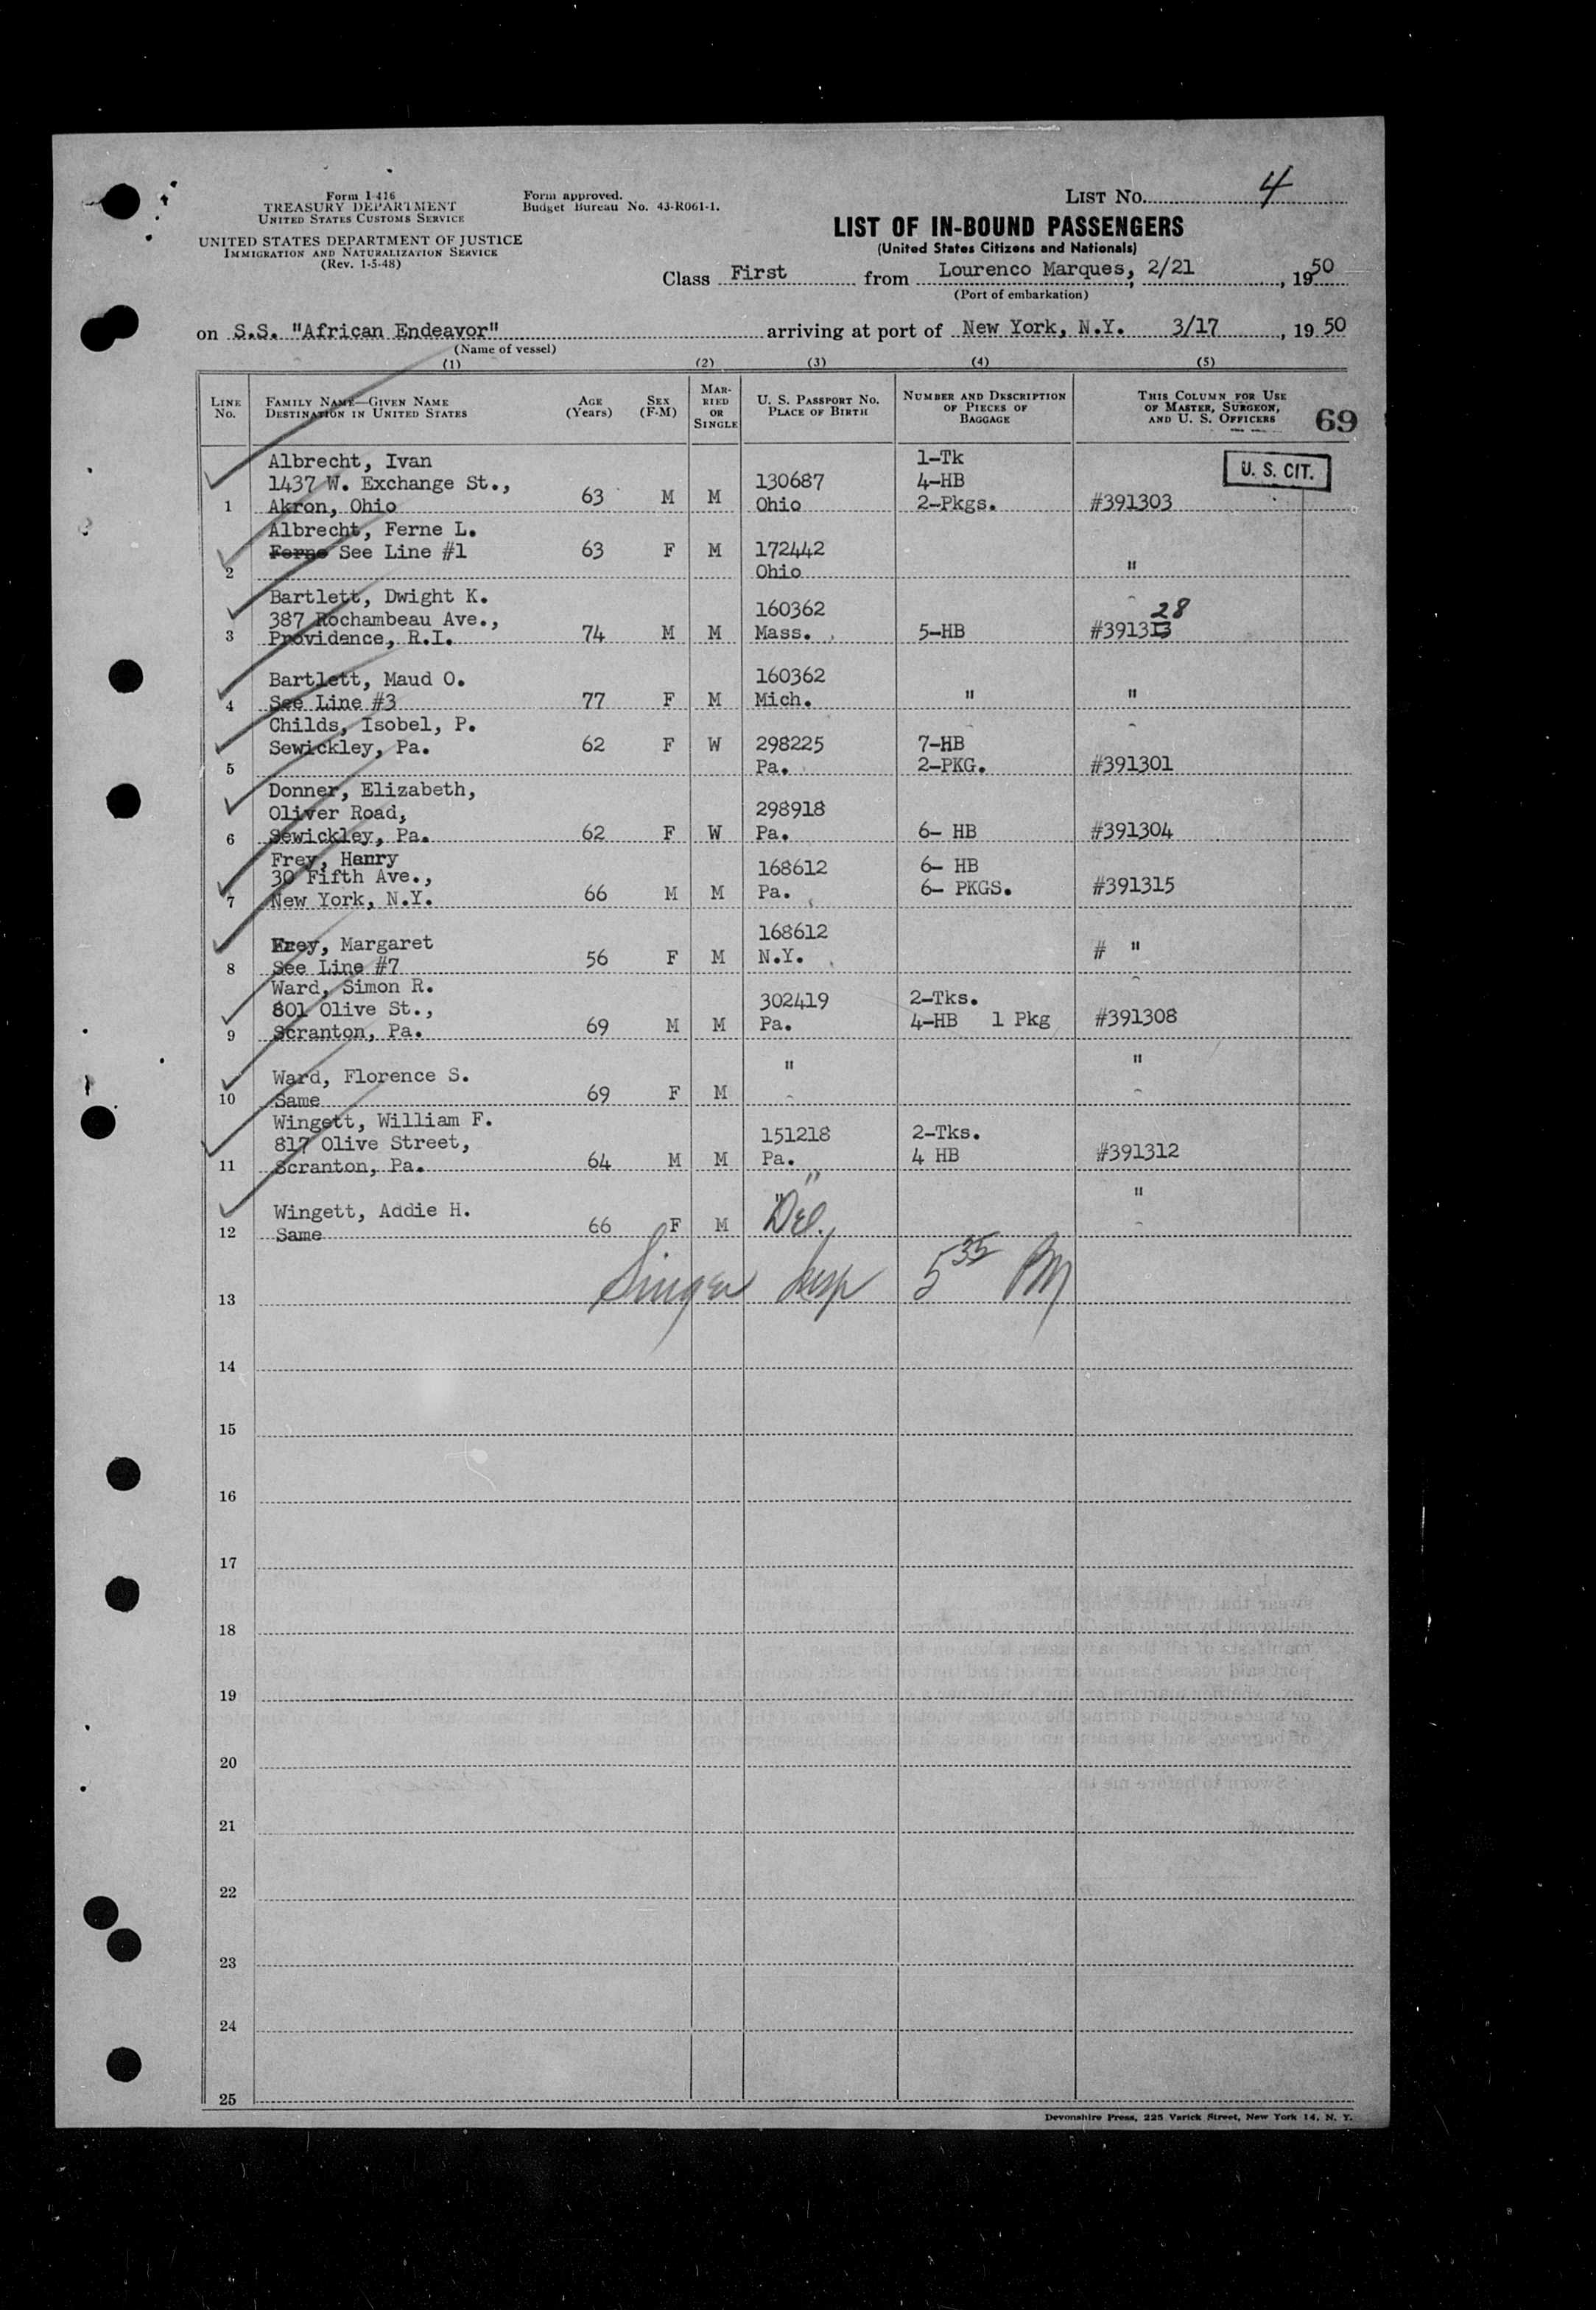 Form I-416
TREASURY DEPARTMENT
UNITED STATES CUSTOMS SERVICE
UNITED STATES DEPARTMENT OF JUSTICE
IMMIGRATION AND NATURALIZATION SERVICE
(Rev. 1-5-48)
Form approved.
Budget Bureau No. 43-R061-1.
LIST No. 4
LIST OF IN-BOUND PASSENGERS
(United States Citizens and Nationals)
Class First from Lourenco Marques, 2/21, 1950
(Port of embarkation)
on S.S. "African Endeavor" arriving at port of New York, N.Y. 3/17, 19 50
(Name of vessel)
(1) (2) (3) (4) (5)
LINE No.
FAMILY NAME—GIVEN NAME
DESTINATION IN UNITED STATES
AGE (Years)
SEX (F-M)
MARRIED OR SINGLE
U. S. PASSPORT NO.
PLACE OF BIRTH
NUMBER AND DESCRIPTION OF PIECES OF BAGGAGE
THIS COLUMN FOR USE OF MASTER, SURGEON, AND U. S. OFFICERS
69
U. S. CIT.
Albrecht, Ivan 1-Tk
1437 W. Exchange St., 130687 4-HB
1 Akron, Ohio 63 M M Ohio 2-Pkgs. #391303
Albrecht, Ferne L.
Ferne See Line #1 63 F M 172442
2 Ohio "
Bartlett, Dwight K.
387 Rochambeau Ave., 160362 28
3 Providence, R.I. 74 M M Mass. 5-HB #39113
Bartlett, Maud O. 160362
4 See Line #3 77 F M Mich. " "
Childs, Isobel, P.
Sewickley, Pa. 62 F W 298225 7-HB
5 Pa. 2-PKG. #391301
Donner, Elizabeth,
Oliver Road, 298918
6 Sewickley, Pa. 62 F W Pa. 6- HB #391304
Frey, Henry
30 Fifth Ave., 168612 6- HB
7 New York, N.Y. 66 M M Pa. 6- PKGS. #391315
Frey, Margaret 168612
8 See Line #7 56 F M N.Y. # "
Ward, Simon R.
801 Olive St., 302419 2-Tks.
9 Scranton, Pa. 69 M M Pa. 4-HB 1 Pkg #391308
Ward, Florence S. " "
10 Same 69 F M
Wingett, William F.
817 Olive Street, 151218 2-Tks.
11 Scranton, Pa. 64 M M Pa. 4 HB #391312
Wingett, Addie H. " " "
12 Same 66 F M Del.
13 Singer Insp 5 35 PM
14
15
16
17
18
19
20
21
22
23
24
25
Devonshire Press, 225 Varick Street, New York 14, N. Y.